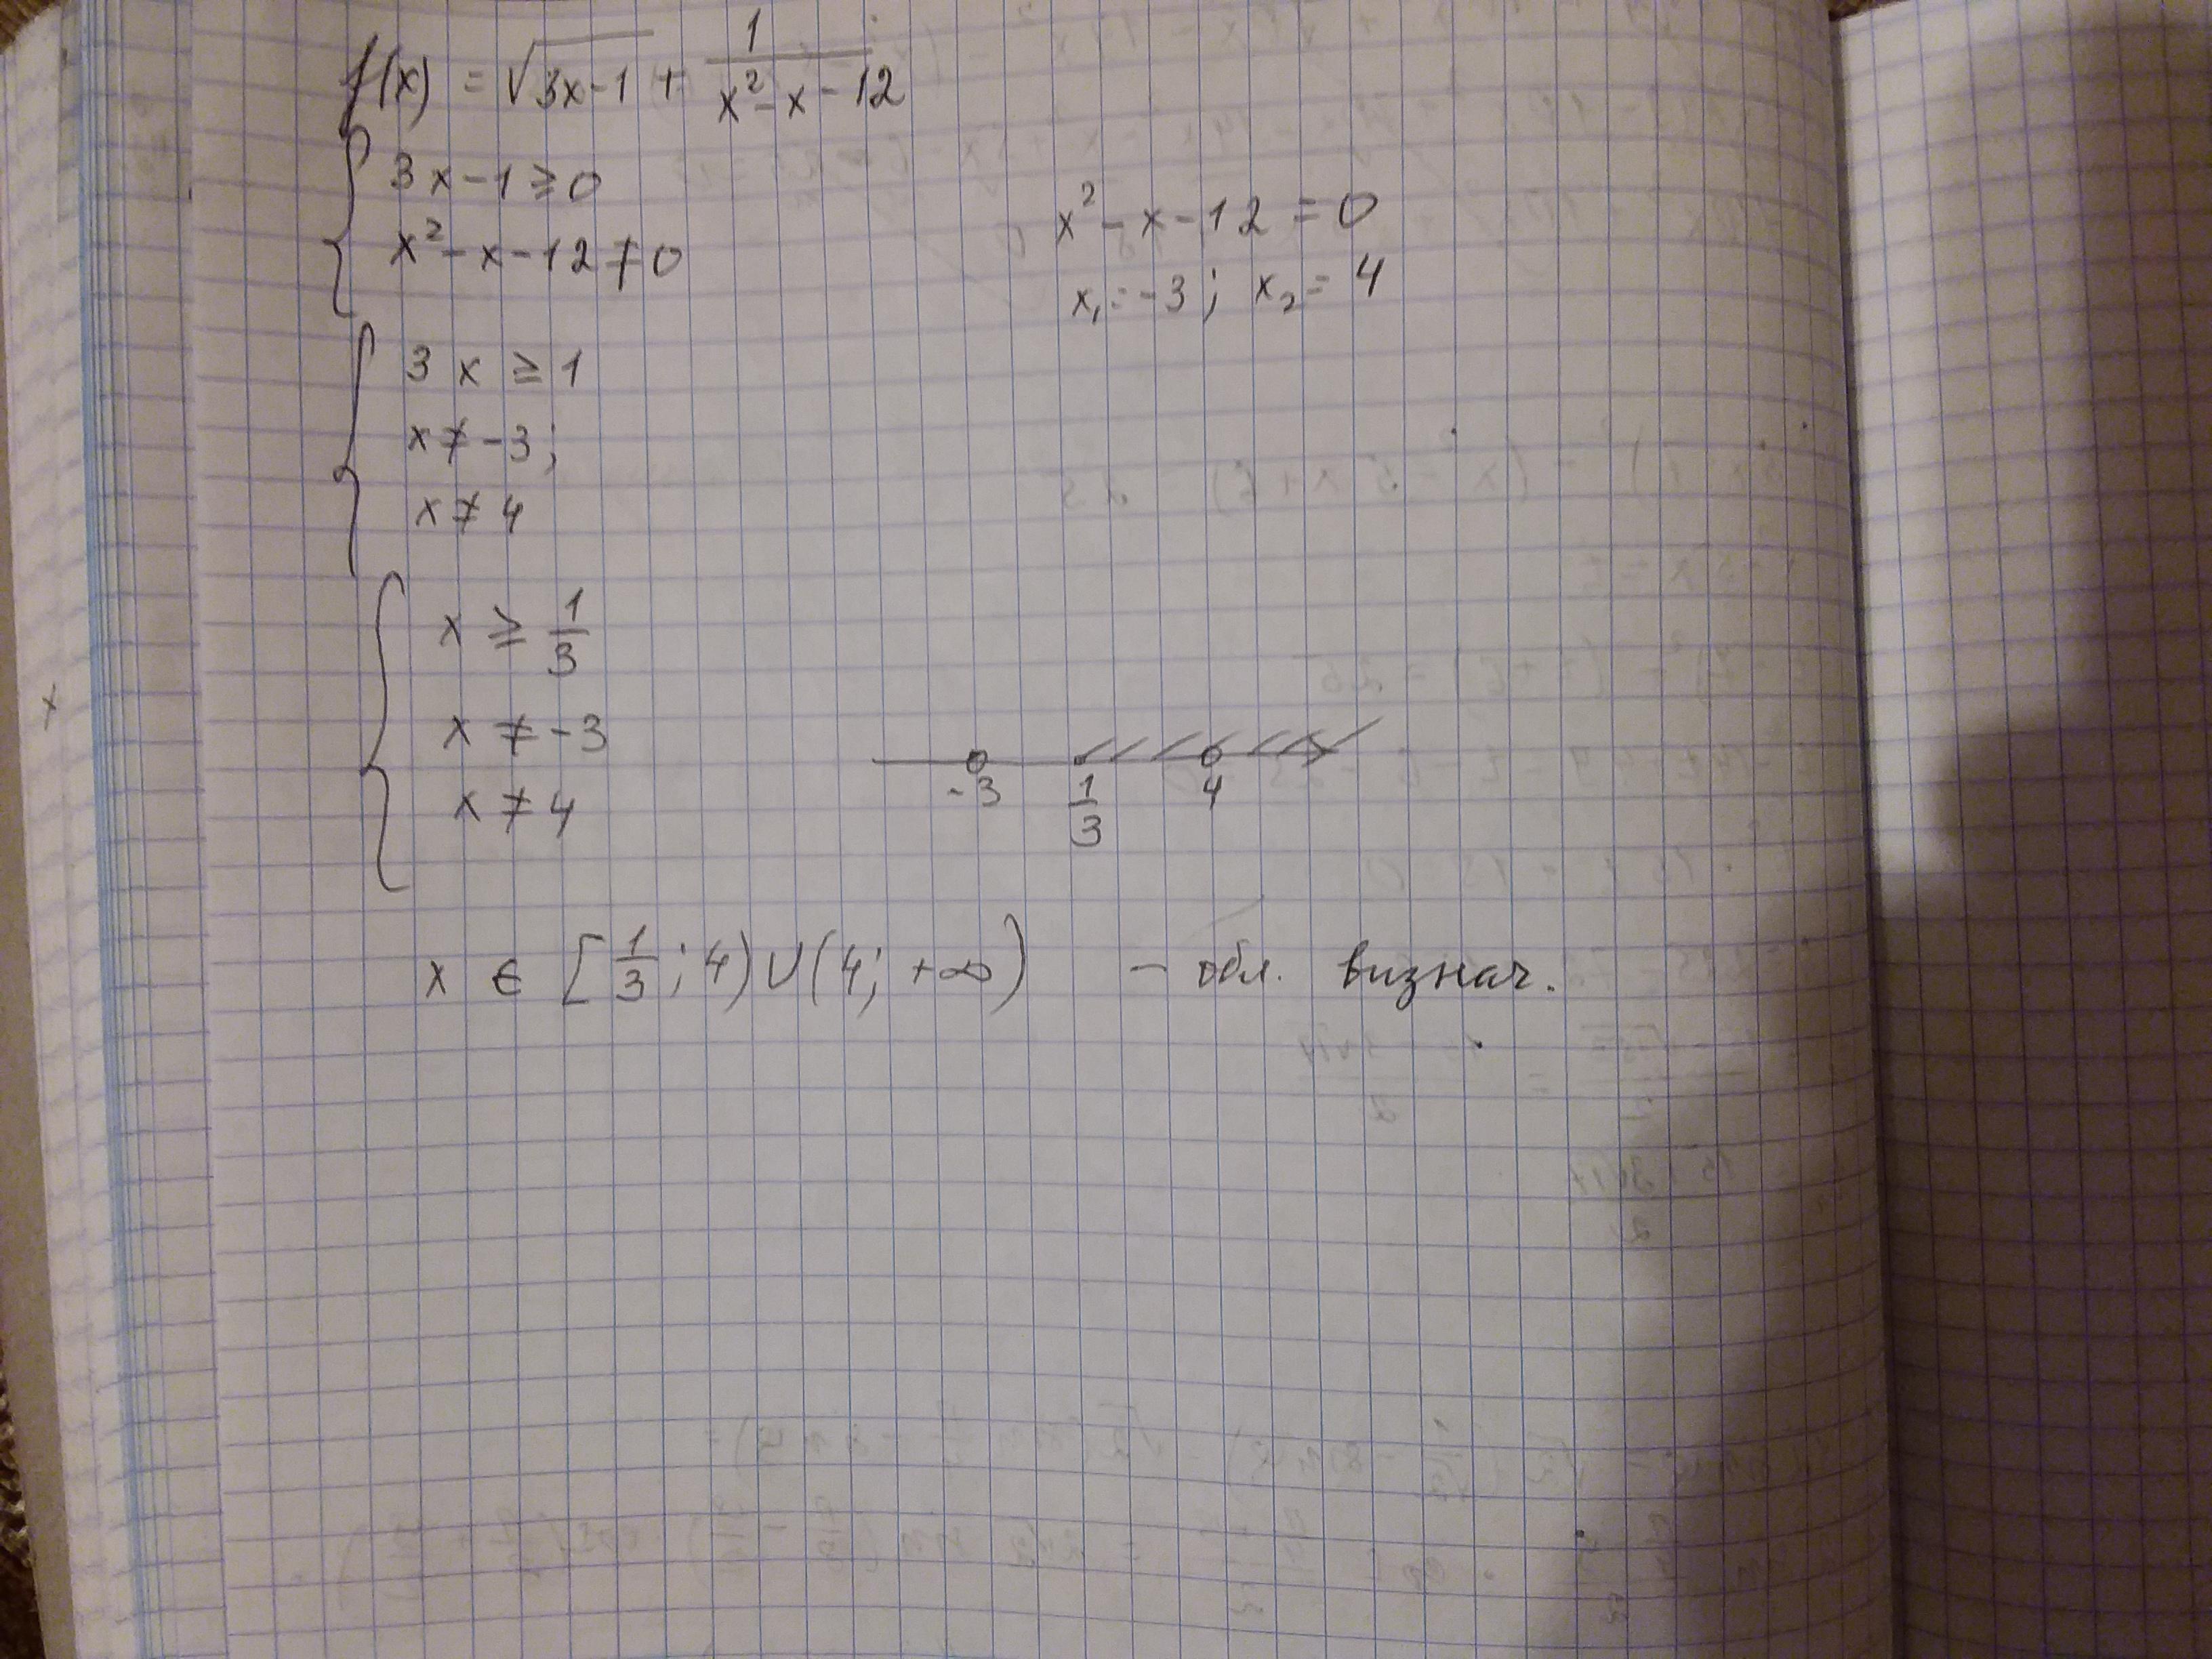 f(x) = √3x-1 + 1/(x²-x-12)
3x-1≥0
x²-x-12≠0
x²-x-12=0
x₁=-3; x₂=4
3x≥1
x≠-3;
x≠4
x≥1/3
x≠-3
x≠4
-3 1/3 4
x ∈ [1/3; 4)∪(4; +∞) - обл. визнач.